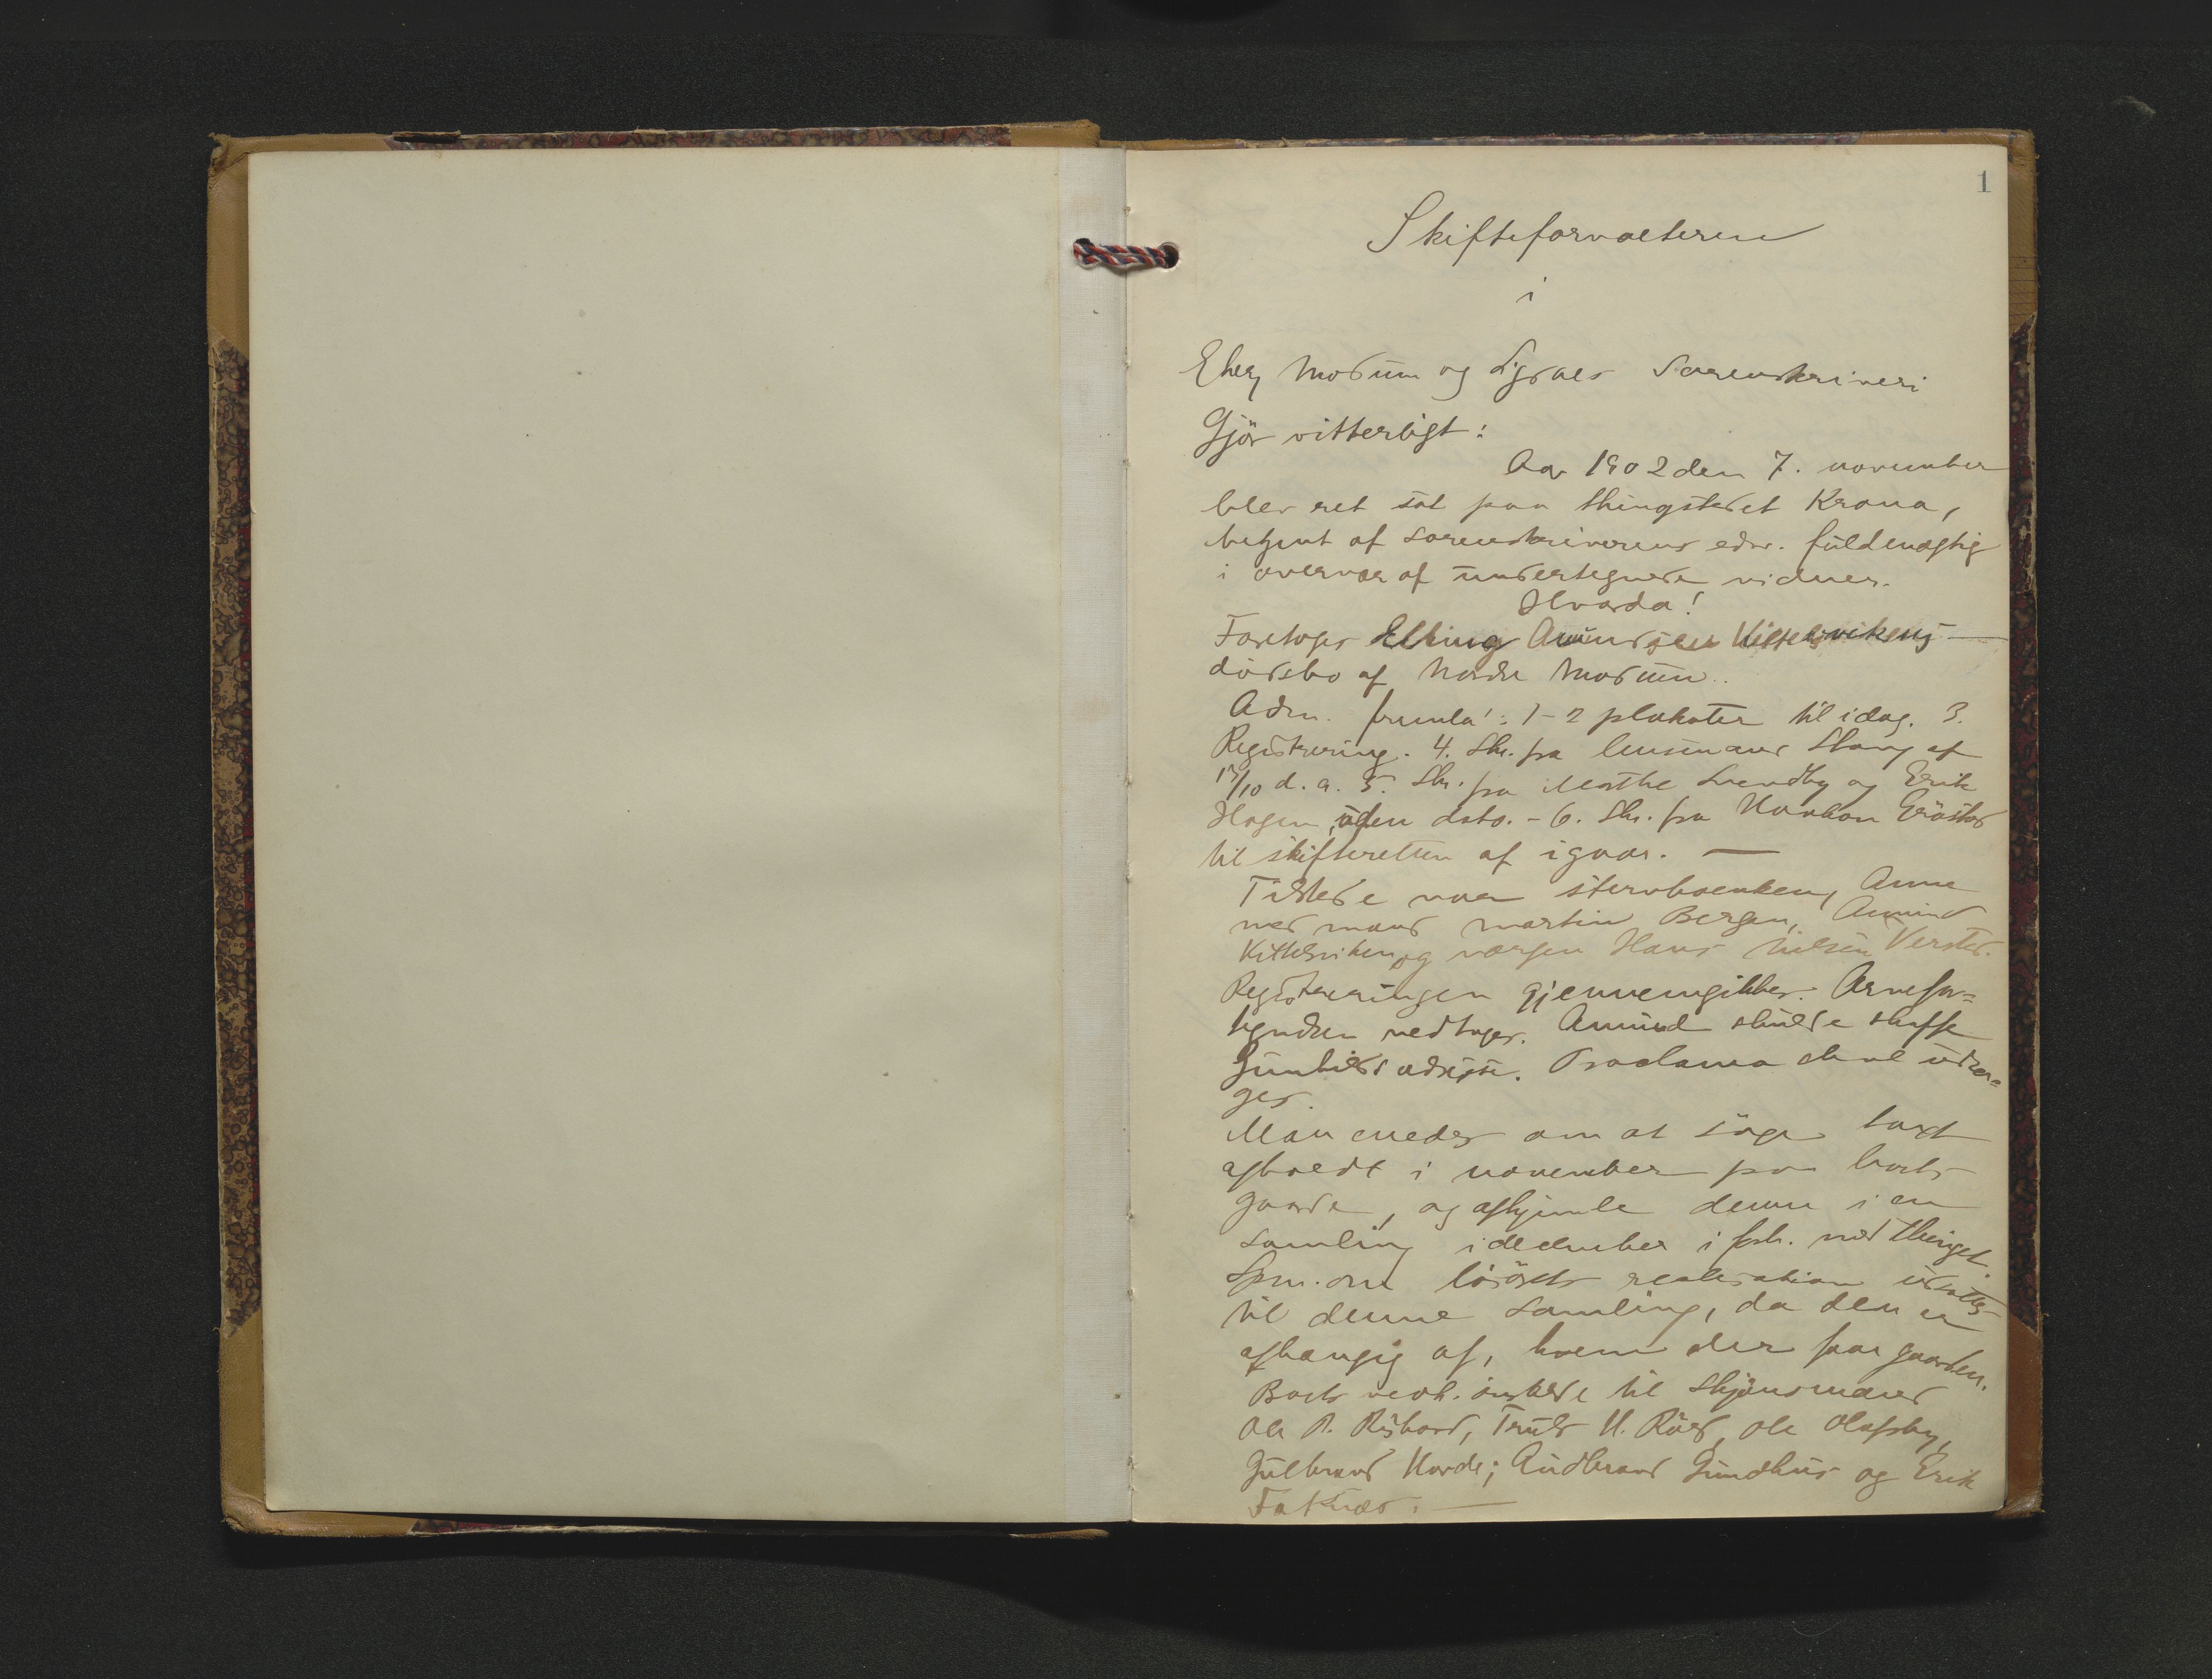 1
Skifteforvalteren
i
Eker, Modum og Sigdals Sorenskriveri
Gjör vitterligt:
Aar 1902 den 7. november
blev ret sat paa thingstedet Krona,
betjent af sorenskriverens edsv. fuldmægtig
i overvær af undertegnede vidner.
Hvorda!
Foretoges Elling Amundsen Kittelsvikens
dödsbo af Nordre Modum.
Adm. fremla': 1-2 plakater til idag. 3.
Registrering. 4. Skr. fra lensmand Stang af
/10 d. a. 5. Skr. fra Marthe Svendby og Erik
Hagen, uden dato. - 6. Skr. fra Haakon
til skifteretten af igaar. —
Tilstede var stervboenken, Anne
med mand Martin Bergan, Amund
Kittelsviken og værgen Hans Nilsen
Registreringen gjennemgikkes. Arvefor=
tegnelsen vedtoges. Amund skulde skaffe
Gunhilds adresse. Proclama skal udstæ=
des.
Man enedes om at söge taxt
afholdt i november paa boets
gaarde, og afhjemle denne i en
samling i december i forb. med thinget.
Spm. om lösörets realisation udsattes
til denne samling, da den er
afhængig af, hvem der faar gaarden.
Boets vedk. önskede til skjönsmænd
Ole P. Truls H. Ole Olafsby,
Gulbrand Gudbrand Gundhus og Erik